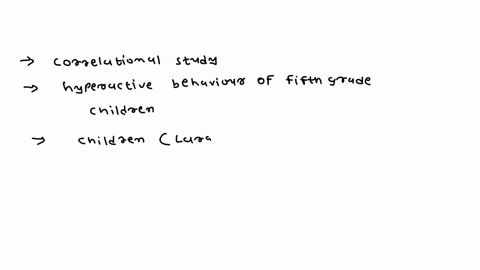 → correlational study
→ hyperactive behaviour of fifth grade
children
→ children (Lura